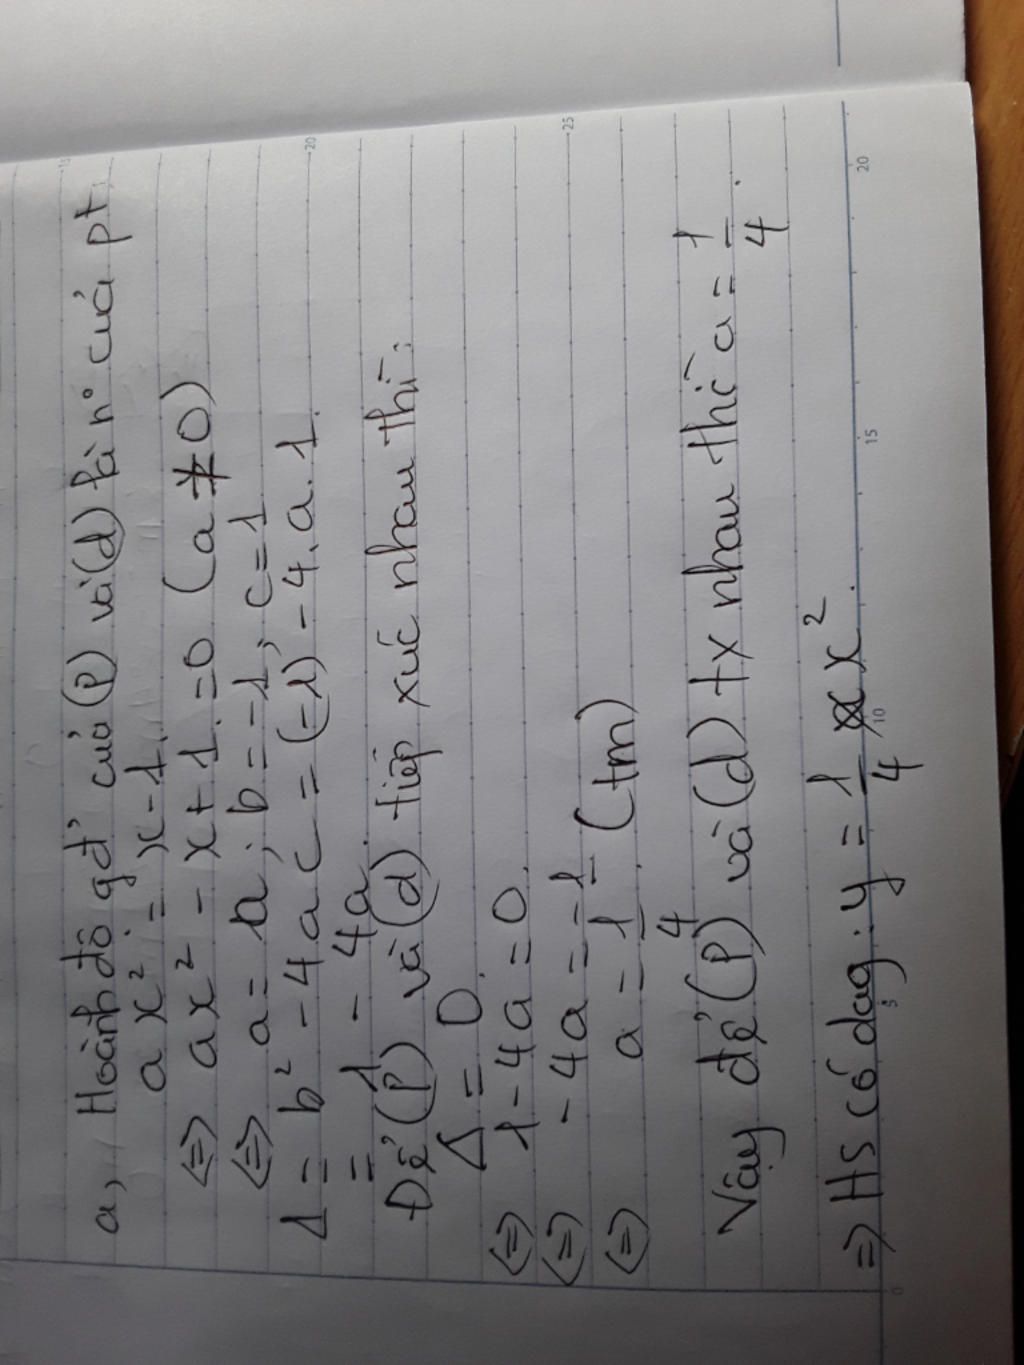 a, Hoành độ gđ' của (P) và (d) là nº của pt:
ax² = x - 1.
<=> ax² - x + 1 = 0 (a ≠ 0)
<=> a = a ; b = -1 ; c = 1
Δ = b² - 4ac = (-1)² - 4.a.1
= 1 - 4a.
Để (P) và (d) tiếp xúc nhau thì:
Δ = 0
<=> 1 - 4a = 0.
<=> - 4a = -1
<=> a = 1/4 (tm)
Vậy để (P) và (d) tx nhau thì a = 1/4.
=> HS có dạg: y = 1/4 x².
15
20
25
0
5
10
15
20